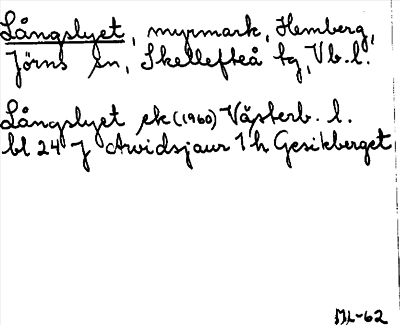 Långslyet, myrmark, Hemberg,
Jörns sn, Skellefteå tg, Vb.l.
Långslyet ek (1960) Västerb. l.
bl 24 J Arvidsjaur 1 h Gesikberget
ML-62